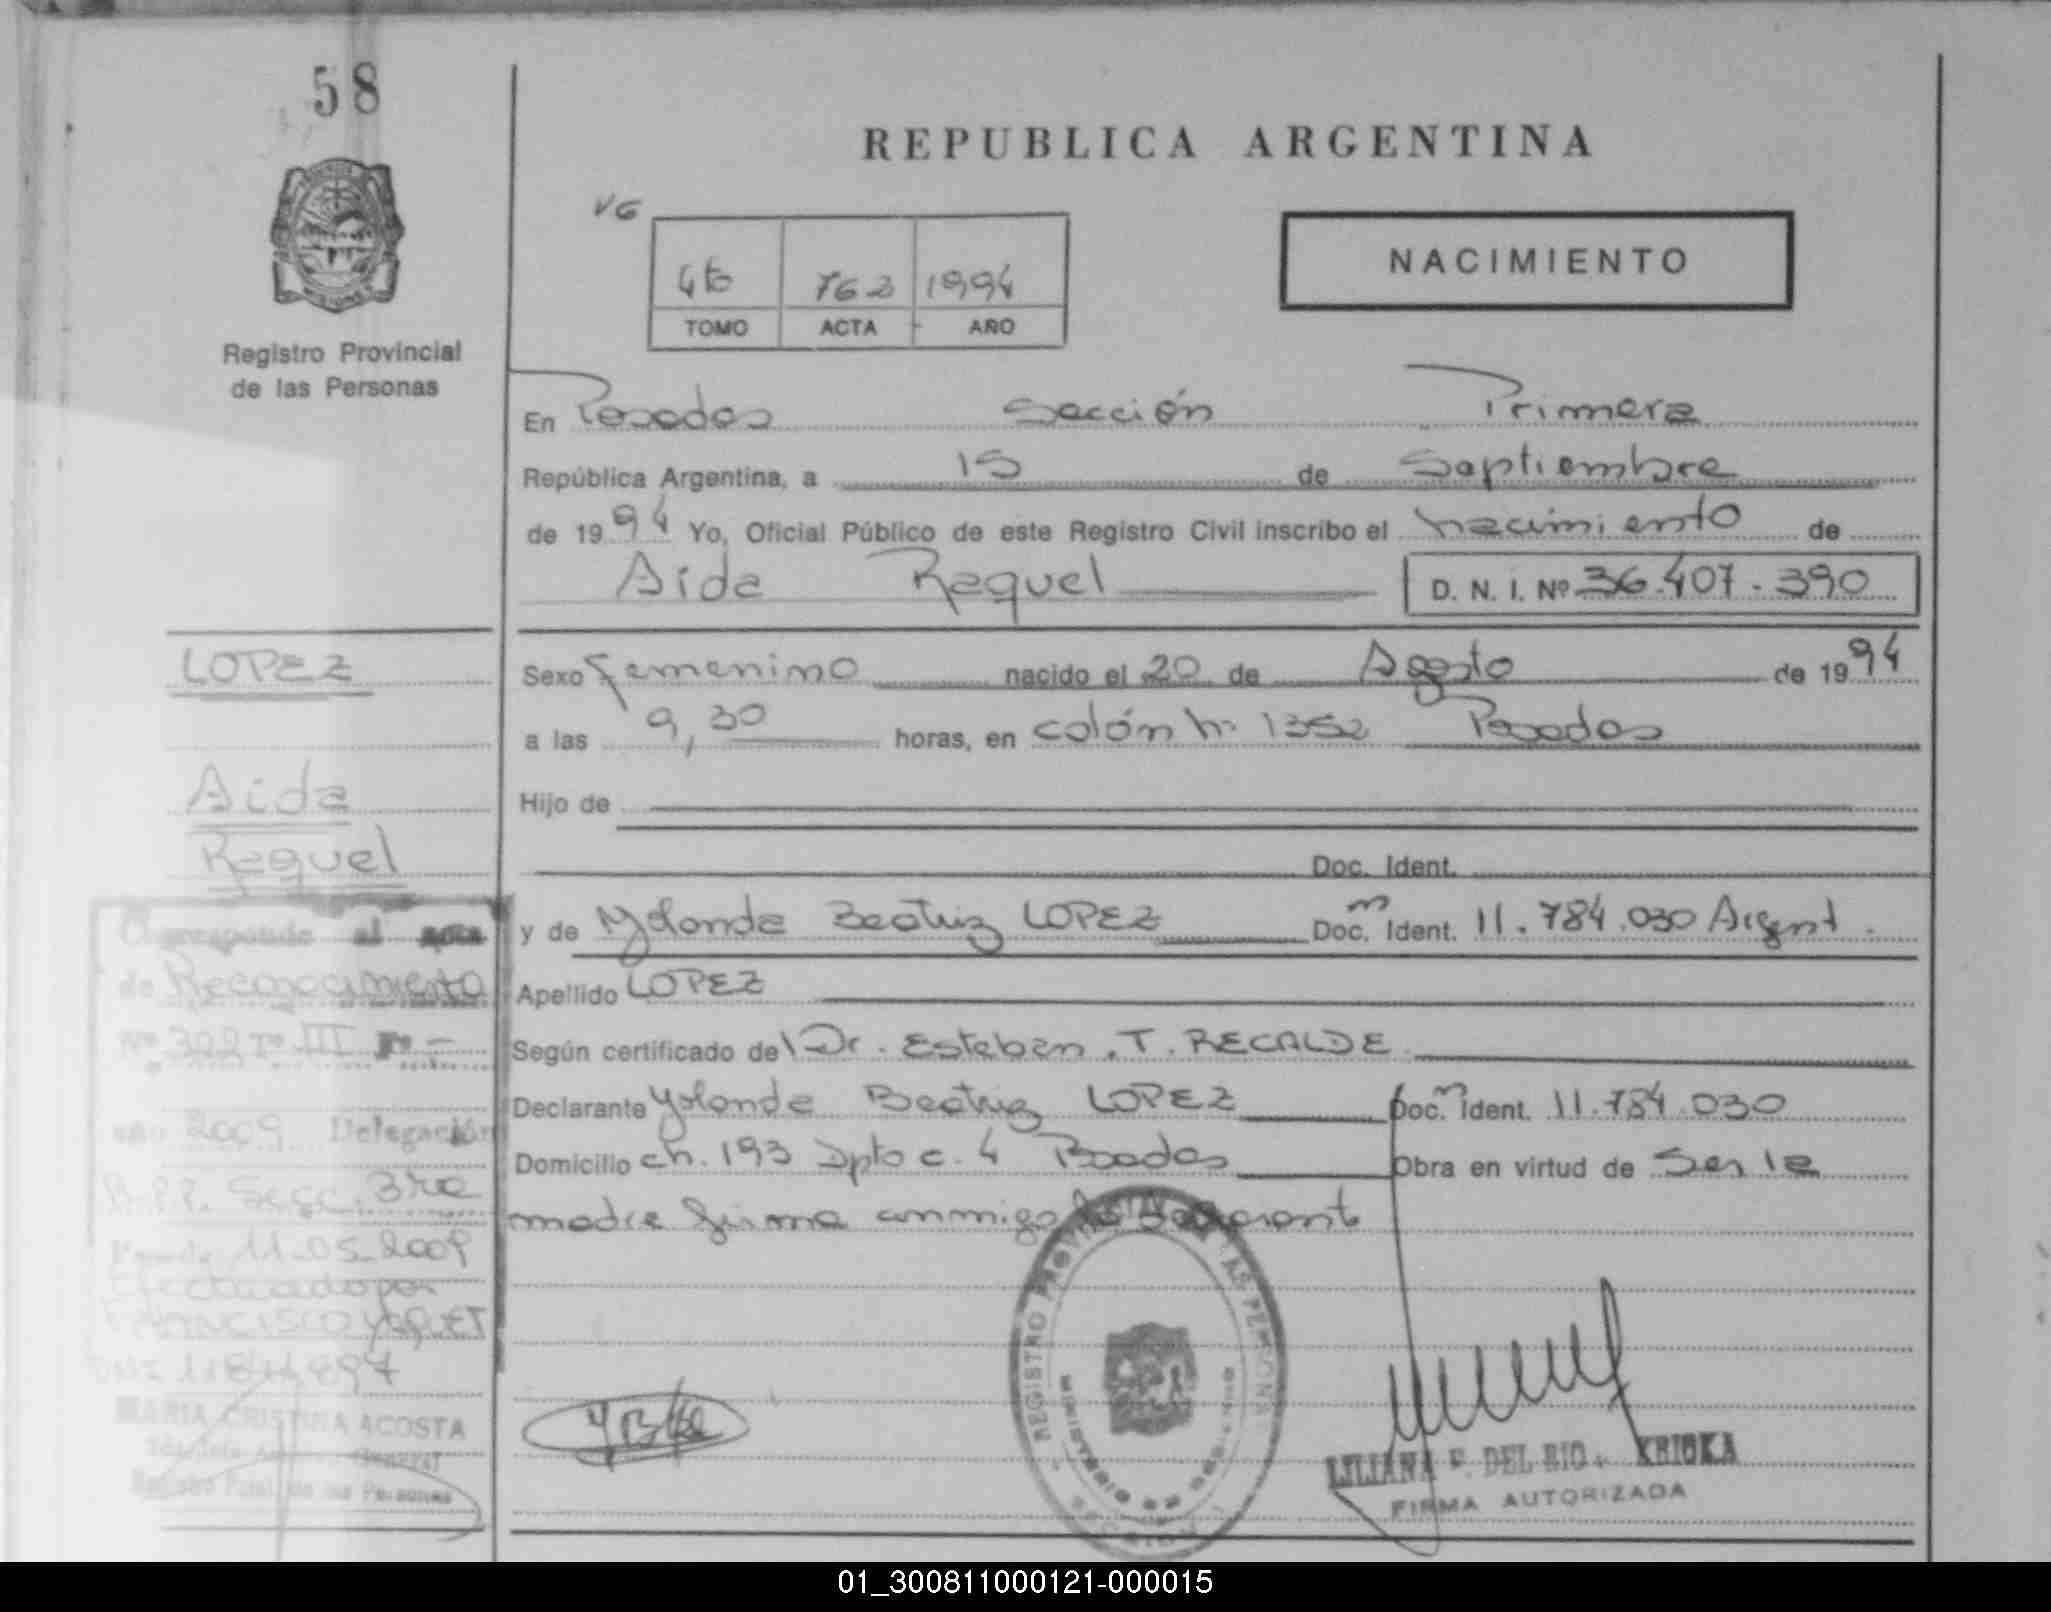 58
REPUBLICA ARGENTINA
VG
4to 762 1994
TOMO ACTA AÑO
NACIMIENTO
Registro Provincial
de las Personas
En Posadas Sección Primera
República Argentina, a 15 de Septiembre
de 1994 Yo, Oficial Público de este Registro Civil inscribo el nacimiento de
Aida Raquel D. N. I. Nº 36.407.390
LOPEZ
Aida
Raquel
Sexo femenino nacido el 20 de Agosto de 1994
a las 9,30 horas, en colón nº 1352 Posadas
Hijo de
Doc. Ident.
y de Yolanda Beatriz LOPEZ Doc. Ident. 11.784.030 Argent.
Apellido LOPEZ
Según certificado del Dr. Esteban T. RECALDE
Declarante Yolanda Beatriz LOPEZ Doc. Ident. 11.784.030
Domicilio ch. 193 Dpto c. 4 Posadas Obra en virtud de Ser la
madre firma conmigo
Corresponde al acta
de Reconocimiento
Nº Tº III Fº -
año 2009 Delegación
R.P.P. Secc. 3ra
11-05-2009
Efectuado por
FRANCISCO
DNI
MARIA CRISTINA ACOSTA
Registro Pcial. de las Personas
REGISTRO PROVINCIAL DE LAS PERSONAS
MINISTERIO DE GOBIERNO
LILIANA F. DEL RIO
FIRMA AUTORIZADA
01_300811000121-000015